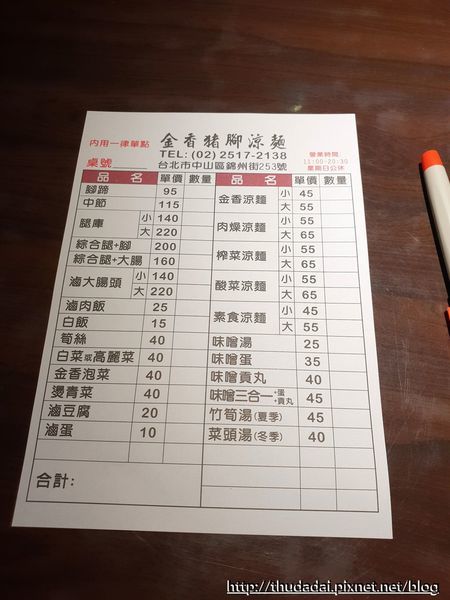 內用一律單點
金香豬腳涼麵
TEL: (02) 2517-2138
營業時間:
11:00-20:30
桌號
台北市中山區錦州街253號
星期日公休
品 名 單價 數量
腳蹄 95
中節 115
腿庫 小 140
大 220
綜合腿+腳 200
綜合腿+大腸 160
滷大腸頭 小 140
大 220
滷肉飯 25
白飯 15
筍絲 40
白菜或高麗菜 40
金香泡菜 40
燙青菜 40
滷豆腐 20
滷蛋 10
合計:
品 名 單價 數量
金香涼麵 小 45
大 55
肉燥涼麵 小 55
大 65
榨菜涼麵 小 55
大 65
酸菜涼麵 小 55
大 65
素食涼麵 小 45
大 55
味噌湯 25
味噌蛋 35
味噌貢丸 40
味噌三合一+蛋+貢丸 45
竹筍湯(夏季) 45
菜頭湯(冬季) 40
http://thudadai.pixnet.net/blog